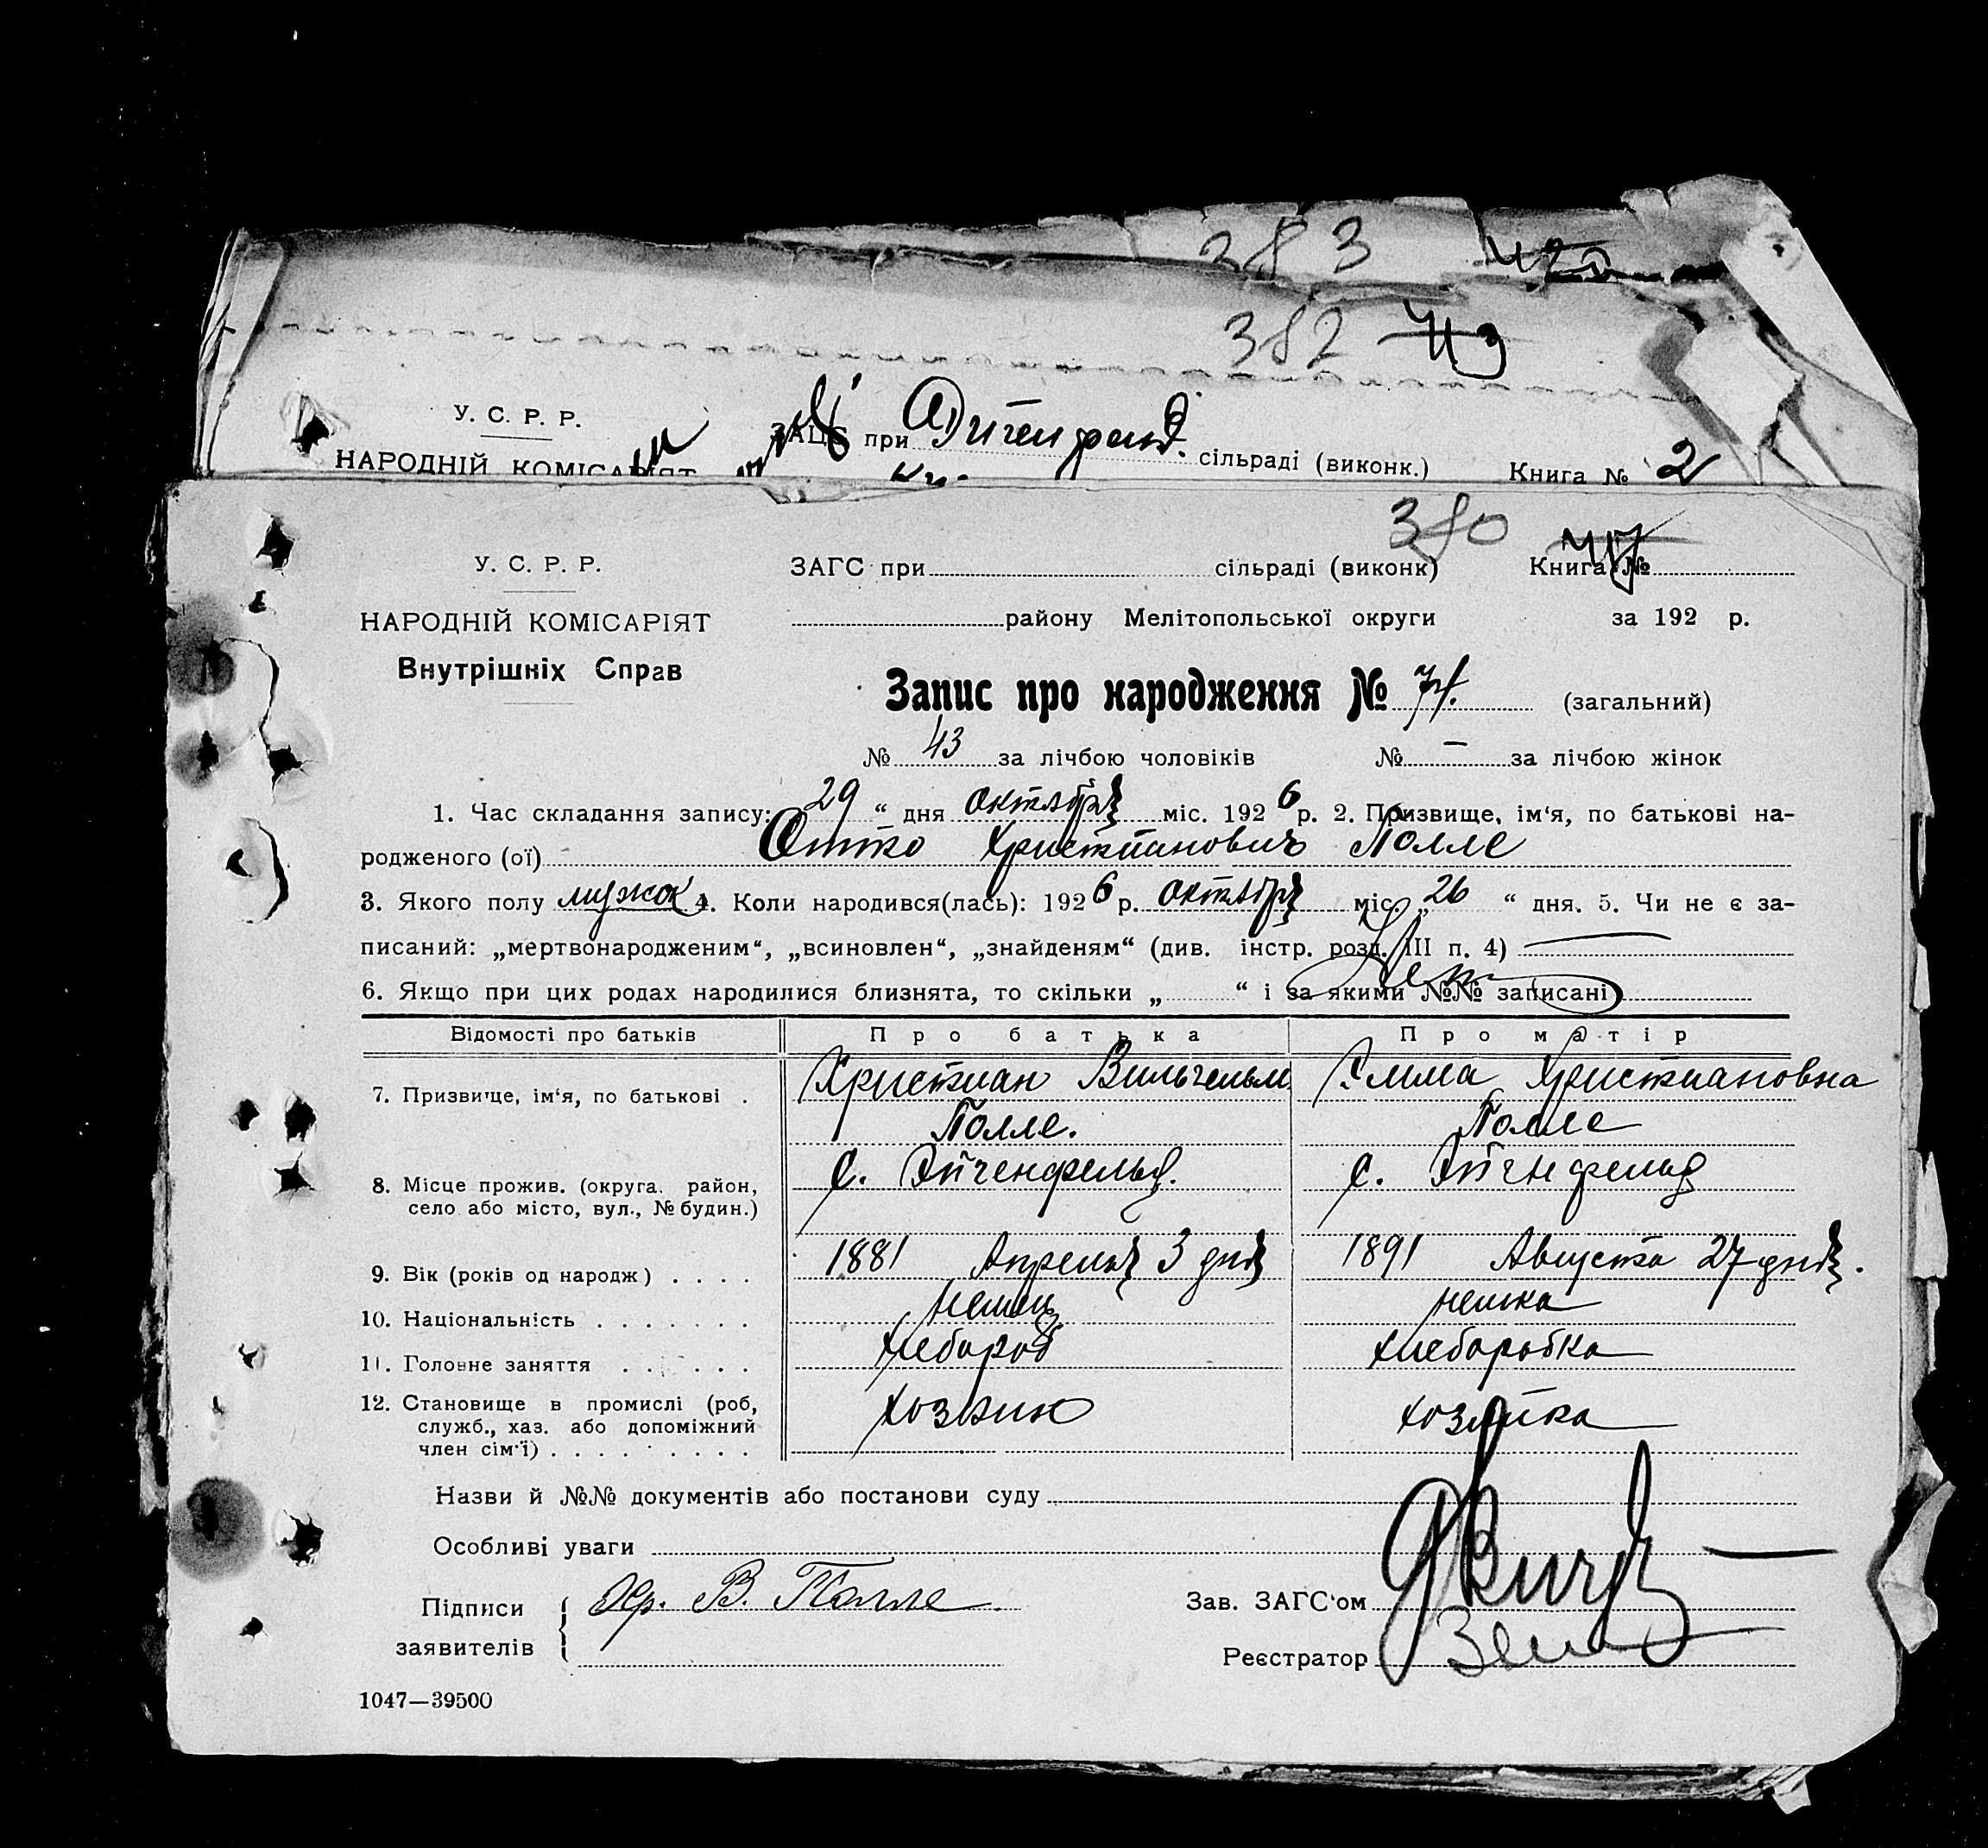 383
382
У. С. Р. Р.
ЗАЦС при сільраді (виконк.) Книга № 2
НАРОДНІЙ КОМІСАРІЯТ
380
У. С. Р. Р. ЗАГС при сільраді (виконк) Книга №
НАРОДНІЙ КОМІСАРІЯТ району Мелітопольської округи за 192 р.
Внутрішніх Справ
Запис про народження № 74. (загальний)
№ 43 за лічбою чоловіків № — за лічбою жінок
1. Час складання запису: 29 “ дня октября міс. 1926 р. 2. Призвище, ім‘я, по батькові на-
родженого (ої) Отто Християнович Полле
3. Якого полу мужск 4. Коли народився(лась): 1926 р. октября міс. „ 26 “ дня. 5. Чи не є за-
писаний: „мертвонародженим“, „всиновлен“, „знайденям“ (див. інстр. розд. III п. 4) —
6. Якщо при цих родах народилися близнята, то скільки „ “ і за якими №№ записані Нет
Відомості про батьків Про батька Про матір
7. Призвище, ім‘я, по батькові . Христиан Вильгельм Эмма Христиановна
Полле. Полле
8. Місце прожив. (округа. район, с. Эйгенфельд. с. Эйгенфельд
село або місто, вул., № будин.)
9. Вік (років од народж) . . . . 1881 Апреля 3 дня 1891 Августа 27 дня.
10. Національність . . . . . . . немец немка
11. Головне заняття . . . . . . хлебороб хлеборобка
12. Становище в промислі (роб, хозяин хозяйка
служб., хаз. або допоміжний
член сім‘ї) . . . . . . . . .
Назви й №№ документів або постанови суду
Особливі уваги
Підписи Хр. В. Полле Зав. ЗАГС‘ом
заявителів
Реєстратор
1047—39500